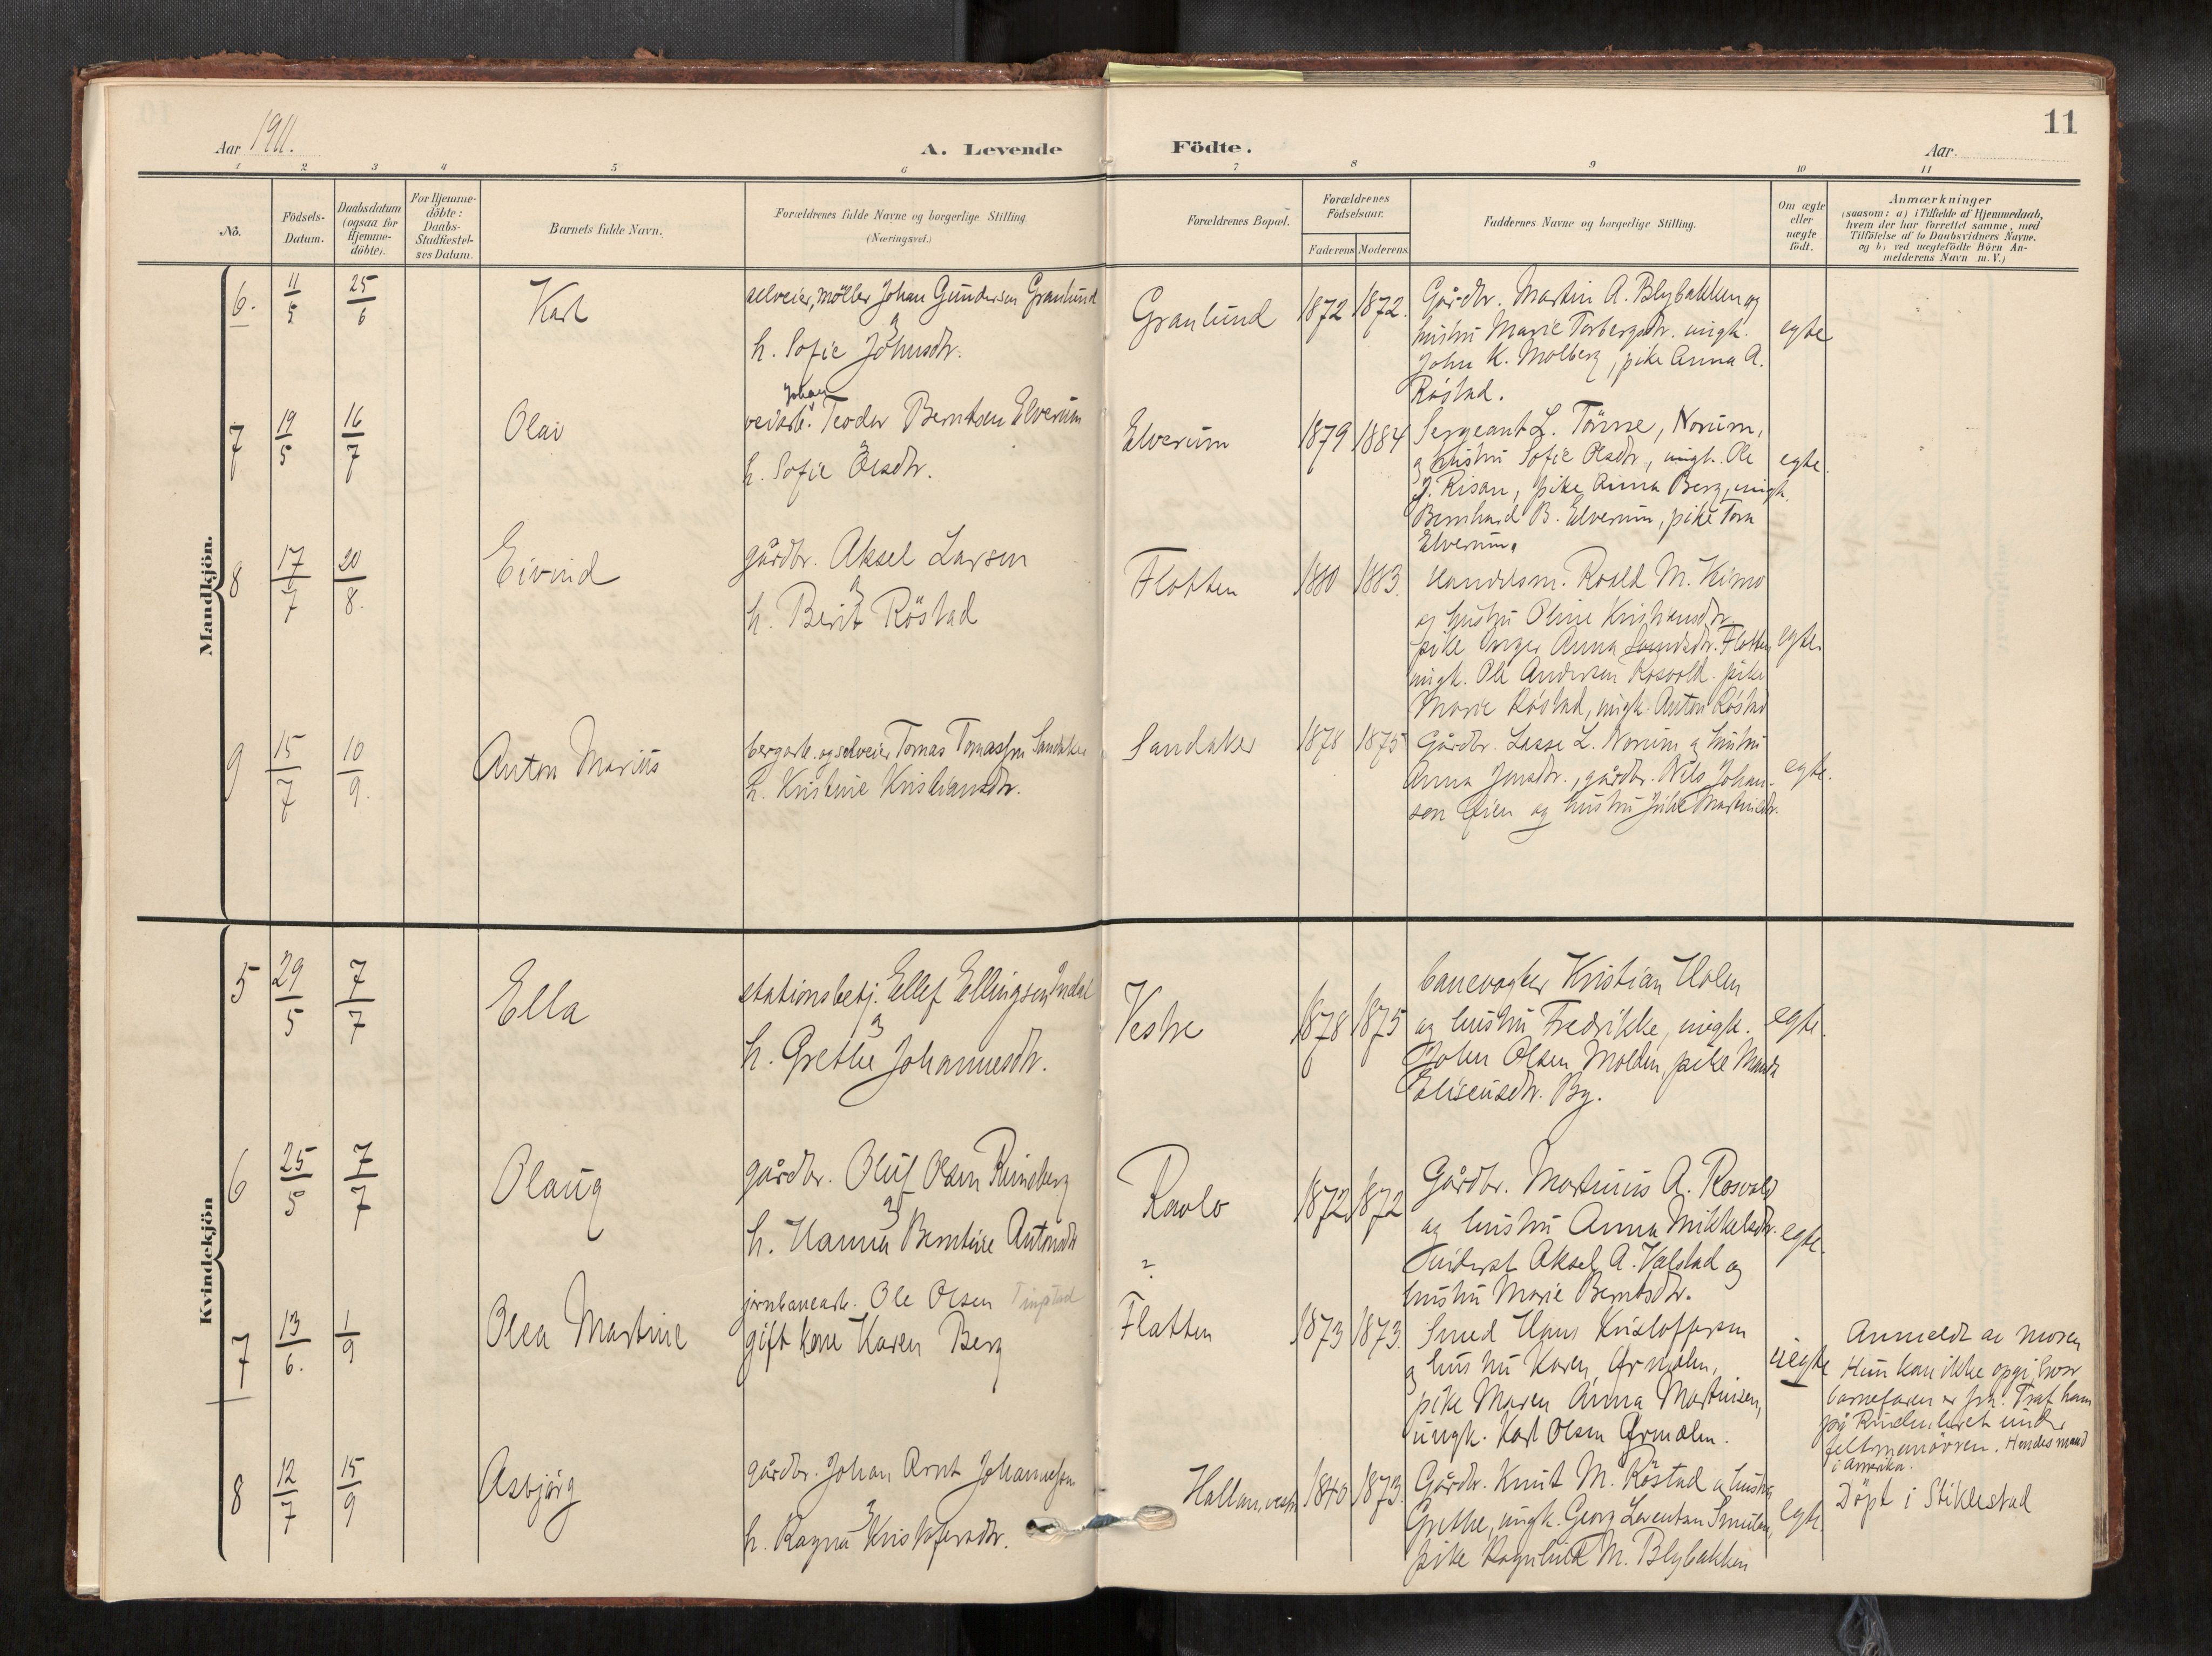 11
Aar 1911.
A. Levende Födte.
Aar.
1 2 3 4 5 6 7 8 9 10 11
No.
Födsels-
Datum.
Daabsdatum
(ogsaa for
Hjemme-
döbte).
For Hjemme-
döbte:
Daabs-
Stadfæstel-
ses Datum.
Barnets fulde Navn.
Forældrenes fulde Navne og borgerlige Stilling
(Næringsvei.)
Forældrenes Bopæl.
Forældrenes
Födselsaar.
Faderens Moderens
Faddernes Navne og borgerlige Stilling.
Om ægte
eller
uægte
födt.
Anmærkninger
(saasom: a) i Tilfælde af Hjemmedaab,
hvem der har forrettet samme, med
Tilföielse af to Daabsvidners Navne,
og b) ved uægtefödte Börn An-
melderens Navn m. V.)
Mandkjön.
6. 11/5 25/6
Karl
selveier, möller Johan Gundersen Granlund
h. Sofie Johnsdtr.
Granlund
1872 1872.
Gårdbr. Martin A. Blybakken og
hustru Marie Torbergsdtr. ungk.
John K. Molberg, pike Anna A.
Röstad.
egte
7 19/5 16/7
Olav
Johan
veiarb. Teodor Berntsen Elverum
h. Sofie Olsdtr.
Elverum
1879 1884
Sergeant L. Tömse, Norum,
og hustru Sofie Olsdtr., ungk. Ole
J. Risan, pike Anna Berg, ungk.
Bernhard B. Elverum, pike Tora
Elverum.
egte.
8 17/7 20/8.
Eivind
gårdbr. Aksel Larsen
h. Berit Röstad
Flotten
1880 1883.
Handelsm. Roald M. Kimo
og hustru Oline Kristiansdtr
pike Inger Anna Flotten
ungk. Ole Andersen Rosvold. pike
Marie Röstad, ungk. Anton Röstad
egte.
9 15/7 10/9.
Anton Marius
bergarb. og selveier Tomas Tomassen Sandaker
h. Kristine Kristiansdtr.
Sandaker
1878 1875
Gårdbr. Lasse L. Norum og hustru
Anna Jensdtr., gårdbr. Nils Johan-
sen Öien og hustru Julie Martinsdtr.
egte.
Kvindekjön
5 29/5 7/7
Ella
stationsbetj. Ellef Ellingsen Indal
h. Grethe Johannesdtr.
Vestre
1878 1875
banevogter Kristian Holm
og hustru Fredrikke, ungk.
John Olsen Molden, pike Manda
Eliseusdtr. By.
egte.
6 25/5 7/7
Olaug
gårdbr. Oluf Olsen Rinsberg
h. Hanna Berntine Antonsdtr
Ravlo
1872 1872
Gårdbr. Martinus A. Rosvold
og hustru Anna Mikkelsdtr.
Inderst Aksel A. Valstad og
hustru Marie Berntsdtr.
egte.
7 13/6. 1/9
Olea Martine
jernbanearb. Ole Olsen Tingstad
gift kone Karen Berg
?
Flatten
1873 1873.
Smed Hans Kristoffersen
og hustru Karen Ørmelen,
pike Maren Anna Martinsen,
ungk. Karl Olsen Ørmelen.
uegte
Anmeldt av moren
Hun kan ikke opgi, hvor
barnefaren er fra. Traf ham
på Rindenleret under
feltmanövren. Hendes mand
i Amerika.
8 12/7 15/9
Asbjörg
gårdbr. Johan Arnt Johannessen
h. Ragna Kristofersdtr.
Hallan, vestre
1840 1873.
Gårdbr. Knut M. Röstad og hustru
Grethe, ungk. Georg
pike Ragnhild M. Blybakken
egte.
Döpt i Stiklestad